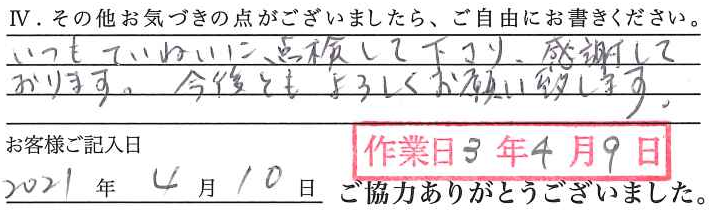 Ⅳ. その他お気づきの点がございましたら、ご自由にお書きください。
いつもていねいに、点検して下さり、感謝して
おります。今後ともよろしくお願い致します。
お客様ご記入日
作業日3年4月9日
2021年4月10日 ご協力ありがとうございました。